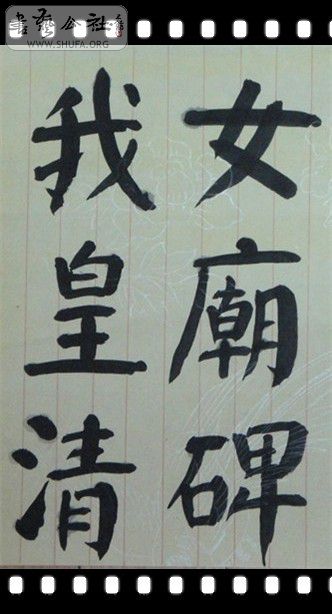 女廟碑
我皇清
書藝公社
WWW.SHUFA.ORG